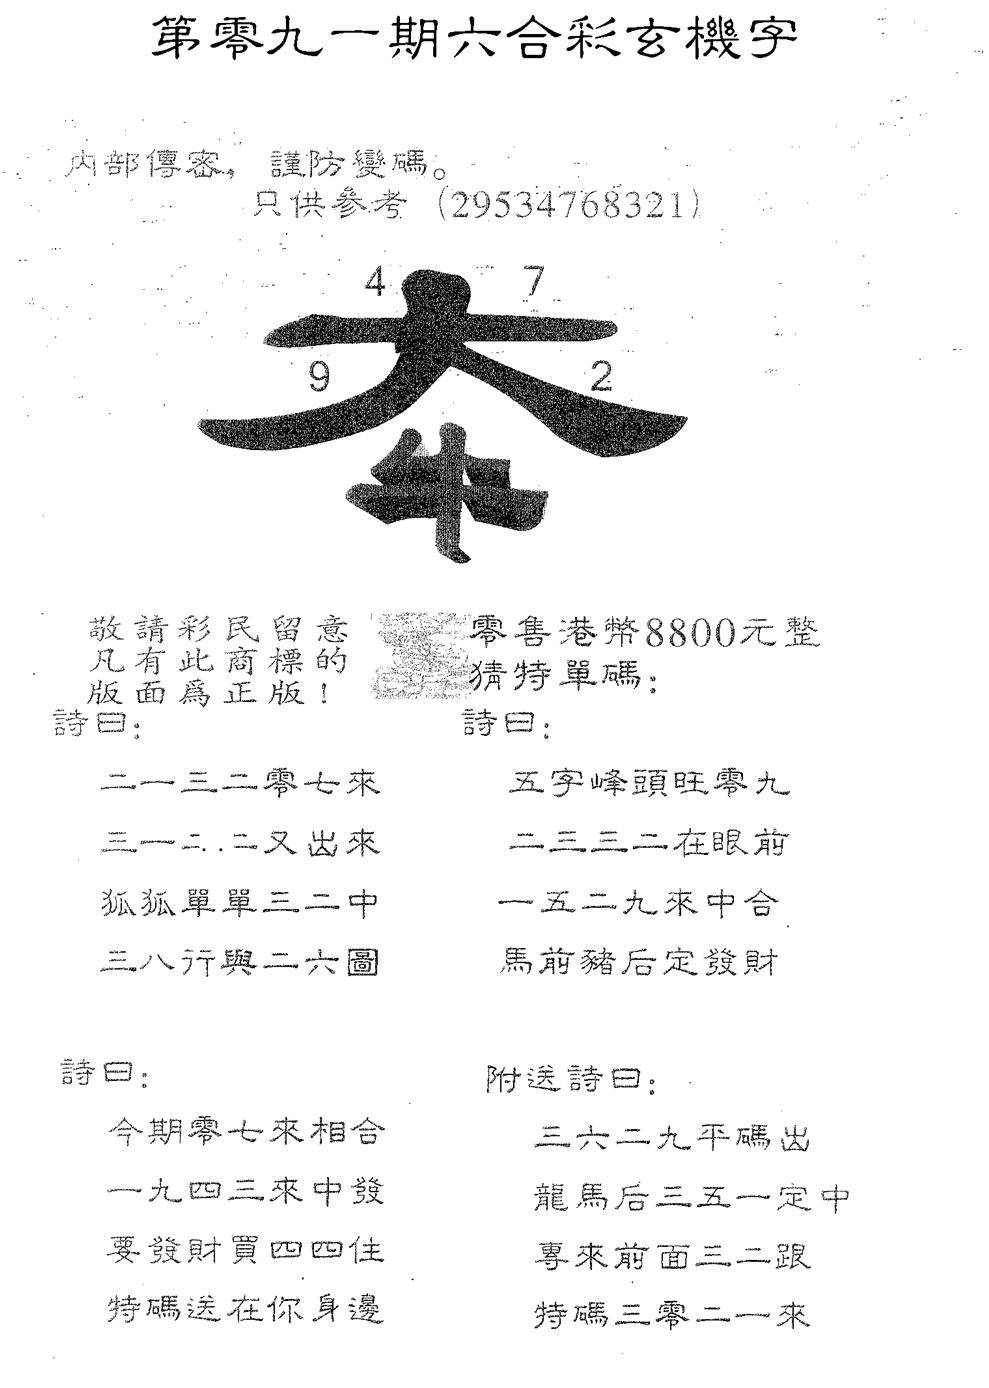 第零九一期六合彩玄機字
內部傳密，謹防變碼。
只供參考（29534768321）
4 7
9 2
敬請彩民留意
凡有此商標的
版面爲正版！
零售港幣8800元整
猜特單碼：
詩曰：
二一三二零七來
三一二..二又出來
狐狐單單三二中
三八行與二六圖
詩曰：
五字峰頭旺零九
二三三二在眼前
一五二九來中合
馬前豬后定發財
詩曰：
今期零七來相合
一九四三來中發
要發財買四四住
特碼送在你身邊
附送詩曰：
三六二九平碼出
龍馬后三五一定中
專來前面三二跟
特碼三零二一來